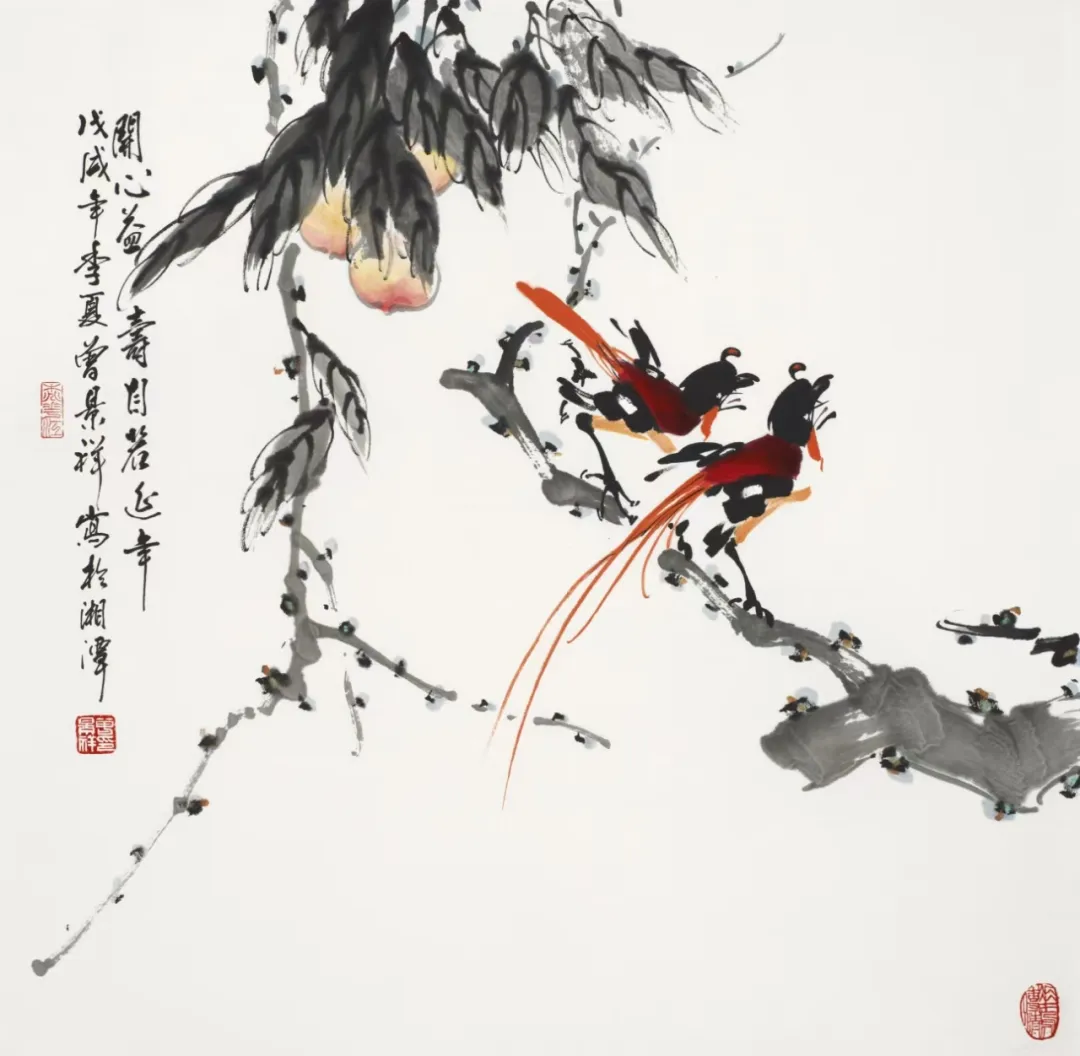 開心益壽自若延年
戊戌年季夏曾景祥寫於湘潭
曾印
景祥